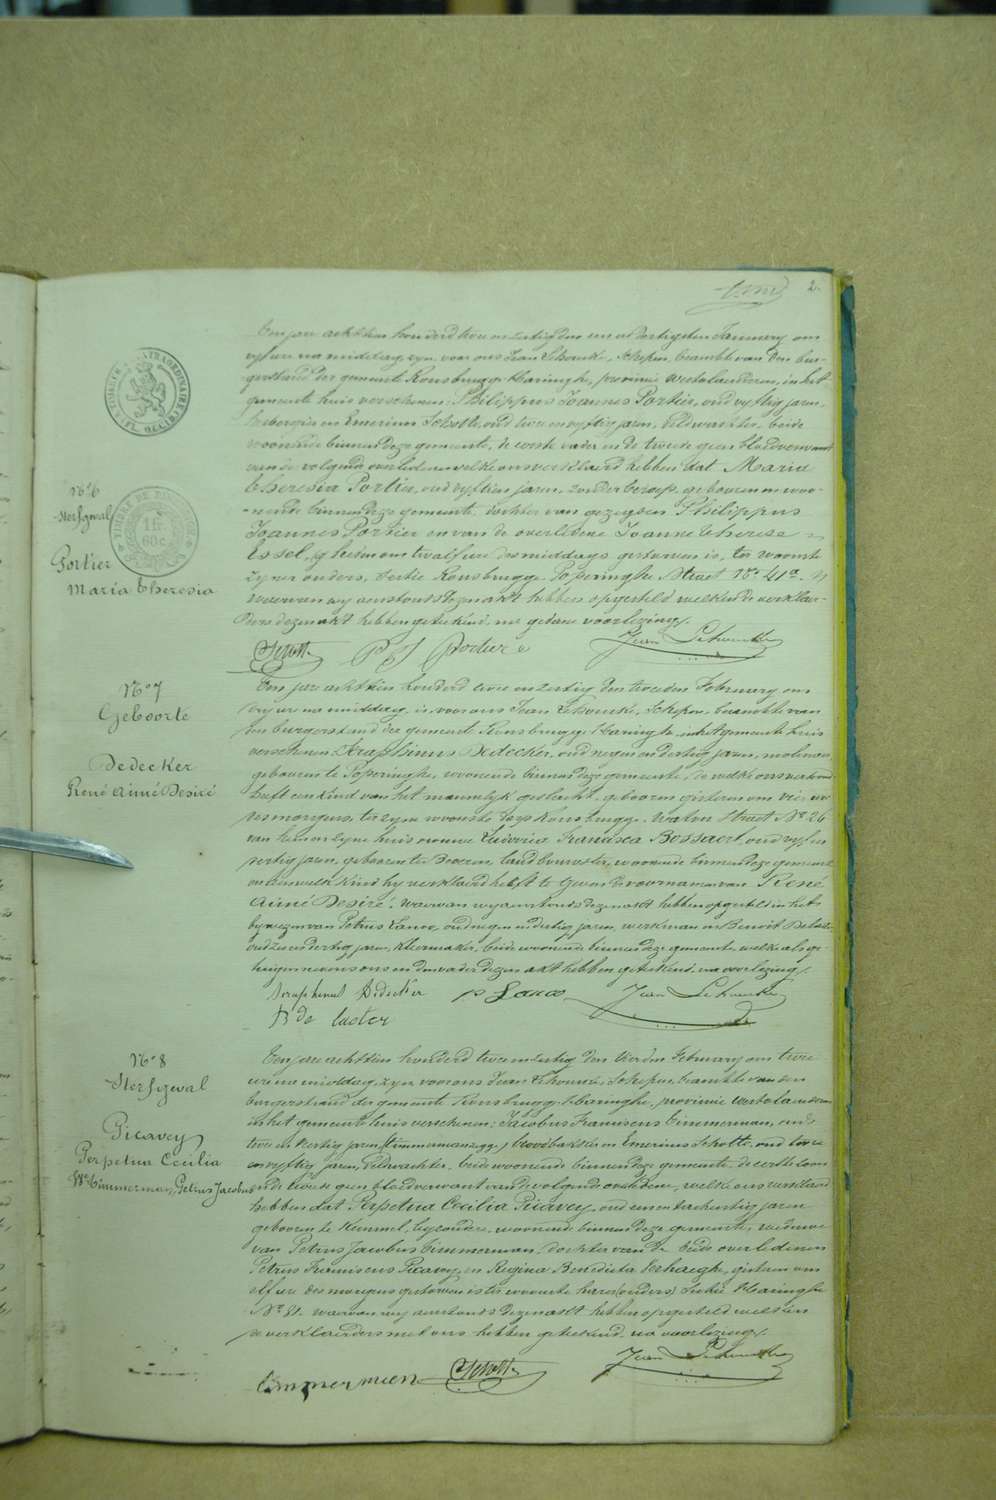 2.
Een jaer achttien honderd twee en zestig den een en dertigsten January om
vyf ure na middag, zyn voor ons Jean Lehoucke, Schepen, beambte van den bur-
gerstand der gemeente Rousbrugge-Haringhe, provincie Westvlaenderen, in het
gemeente huis verschenen: Philippus Joannes Portier, oud vyftig jaren,
herbergier en Emerinus Schotte, oud twee en vyftig jaren, Veldwachter, beide
woonende binnen deze gemeente, de eerste vader en de tweede geen bloedverwant
van de volgende overledene welke ons verklaerd hebben dat Maria
Theresia Portier, oud vyftien jaren, zonder beroep, geboren en woo-
nende binnen deze gemeente, dochter van gezegden Philippus
Joannes Portier en van de overledene Joanne Therese
Essel, gisteren om twalf ure des middags gestorven is, ter woonste
zyner ouders, sectie Rousbrugge, Poperinghe Straet No. 41a.
waervan wy aenstonds dezen akt hebben opgesteld welken de verklaer-
ders dezen akt hebben geteekend, na gedane voorlezing.
Schotte P J Portier Jean Lehoucke
No 6
Sterfgeval
Portier
Maria Theresia
TIMBRE DE DIMENSION
1 fr.
60 c.
No 7
Geboorte
Dedecker
René Aimé Desiré
Een jaer achttien honderd twee en zestig den tweeden February om
dry ure na middag, is voor ons Jean Lehoucke, Schepen, beambte van
den burgerstand der gemeente Rousbrugge-Haringhe, in het gemeente huis
verschenen: Seraphinus Dedecker, oud negen en dertig jaren, molenaer,
geboren te Poperinghe, woonende binnen deze gemeente, de welke ons verklaerd
heeft een kind van het mannelyk geslacht, geboren gisteren om vier ure
des morgens, ter zyne woonste wyk Rousbrugge, Waton Straet No. 26
van hem en zyne huisvrouwe Ludovica Francisca Bossaert, oud vyf en
veertig jaren, geboren te Beveren, landbouwster, woonende binnen deze gemeente
en aen welk kind hy verklaerd heeft te geven de voornamen van René
Aimé Desiré. Waervan wy aenstonds dezen akt hebben opgesteld in het
bywezen van Petrus Lanoo, oud negen en dertig jaren, werkman en Benoit
oud zes en dertig jaren, kleermaker, beide woonende binnen deze gemeente welke als ge-
tuigen nevens ons en den vader dezen akt hebben geteekend, na voorlezing.
Seraphinus Dedecker P Lanoo Jean Lehoucke
B de laeter
No 8
Sterfgeval
Picavey
Perpetua Cecilia
We Timmerman, Petrus Jacobus
Een jaer achttien honderd twee en zestig den vierden February om twee
ure na middag, zyn voor ons Jean Lehoucke, Schepen, beambte van den
burgerstand der gemeente Rousbrugge-Haringhe, provincie Westvlaenderen
in het gemeente huis verschenen: Jacobus Franciscus Timmerman, oud
twee en veertig jaren, broodbakker en Emerinus Schotte, oud twee
en vyftig jaren, Veldwachter, beide woonende binnen deze gemeente, de eerste zoon
en de tweede geen bloedverwant van de volgende overledene, welke ons verklaerd
hebben dat Perpetua Cecilia Picavey, oud een en tachentig jaren
geboren te Kemmel, byzondere, woonende binnen deze gemeente, weduwe
van Petrus Jacobus Timmerman, dochter van de beide overledenen
Petrus Franciscus Picavey, en Regina Benedicta Verhaeghe, gisteren om
elf ure des morgens gestorven is ter woonste sectie Haringhe
No. 81. waervan wy aenstonds dezen akt hebben opgesteld welken
de verklaerders met ons hebben geteekend, na voorlezing.
timmerman Schotte Jean Lehoucke